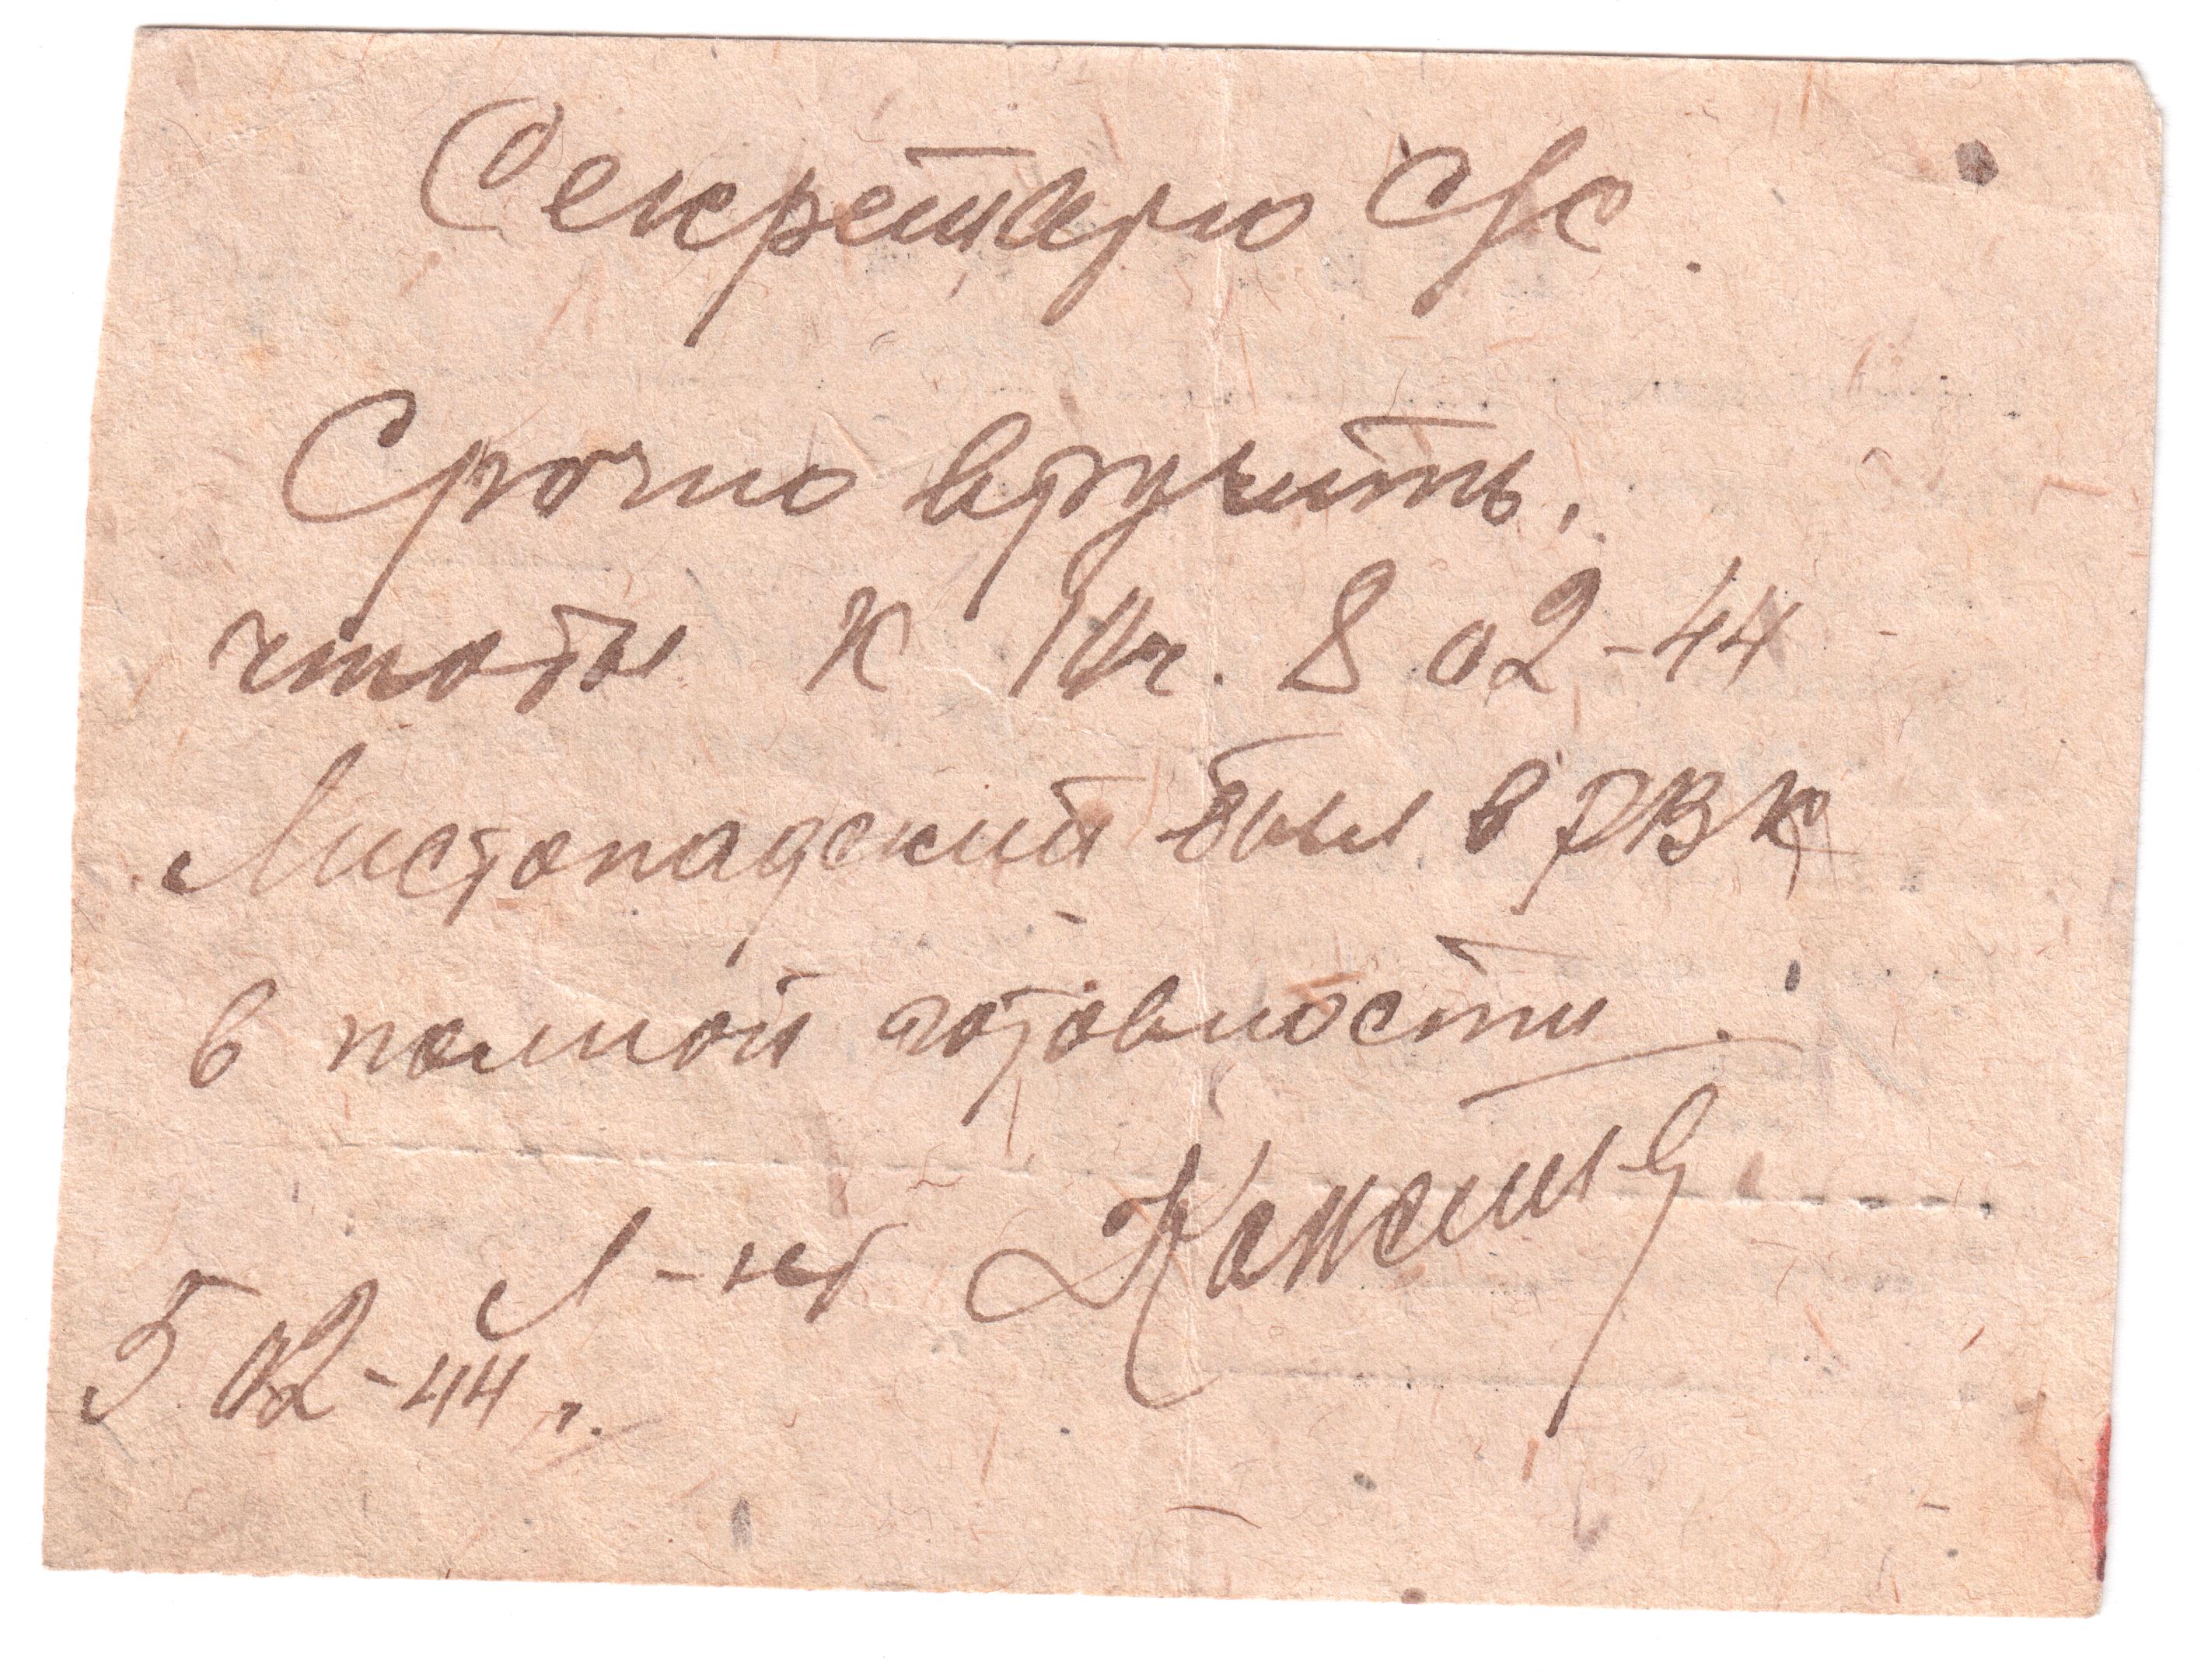 Секретарю с/с
Срочно вручить,
чтобы к 10ч. 8 02-44
Листопадский был в РВК
в полной готовности.
Л-нт
5 02-44 г.